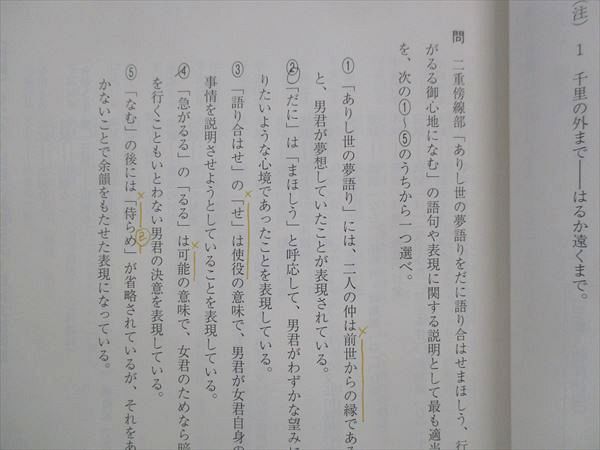 (注) 1 千里の外まで――はるか遠くまで。
問 二重傍線部「ありし世の夢語りをだに語り合はせまほしう、行
がるる御心地になむ」の語句や表現に関する説明として最も適当
を、次の①〜⑤のうちから一つ選べ。
① 「ありし世の夢語り」には、二人の仲は前世からの縁である
と、男君が夢想していたことが表現されている。
② 「だに」は「まほしう」と呼応して、男君がわずかな望みに
りたいような心境であったことを表現している。
③ 「語り合はせ」の「せ」は使役の意味で、男君が女君自身の
事情を説明させようとしていることを表現している。
④ 「急がるる」の「るる」は可能の意味で、女君のためなら暗
を行くこともいとわない男君の決意を表現している。
⑤ 「なむ」の後には「侍らめ」が省略されているが、それをあ
かないことで余韻をもたせた表現になっている。